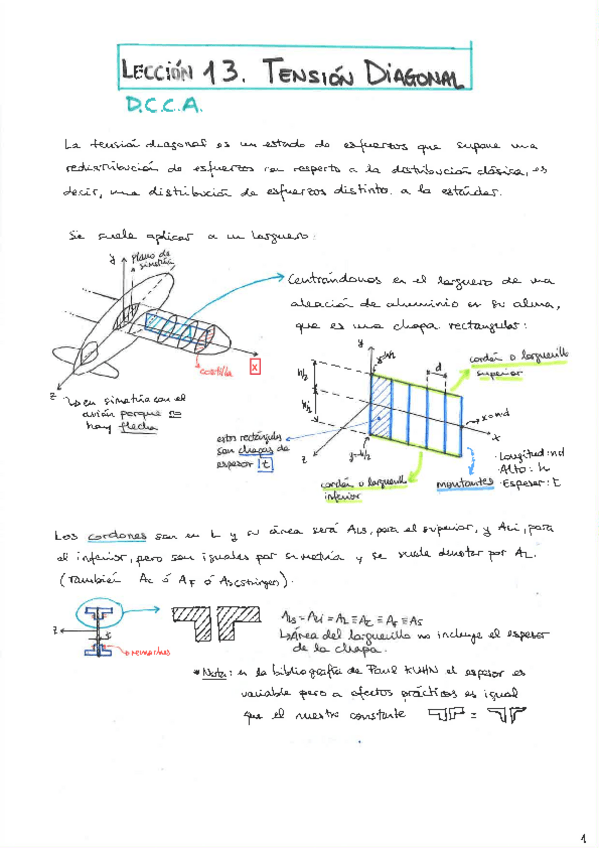 LECCIÓN 13. TENSIÓN DIAGONAL
D.C.C.A.
La tensión diagonal es un estado de esfuerzos que supone una
redistribución de esfuerzos con respecto a la distribución clásica, es
decir, una distribución de esfuerzos distinto a la estándar.
Se suele aplicar a un larguero:
y
plano de
simetría
costilla
x
z
↳ en simetría con el
avión porque no
hay flecha
Centrándonos en el larguero de una
aleación de aluminio en su alma,
que es una chapa rectangular:
y
y=h/2
h/2
h/2
d
cordón o larguerillo
superior
x=nd
x
z
y=-h/2
estos rectángulos
son chapas de
espesor t
cordón o larguerillo
inferior
montantes
· Longitud: nd
· Alto: h
· Espesor: t
Los cordones son en L y su área será ALS, para el superior, y ALi, para
el inferior, pero son iguales por simetría y se suele denotar por AL.
(También AC ó AF ó AS (stringer)).
z
t
remaches
ALS = ALi = AL ≡ AC ≡ AF ≡ AS
↳ Área del larguerillo no incluye el espesor
de la chapa.
* Nota: en la bibliografía de Paul KUHN el espesor es
variable pero a efectos prácticos es igual
que el nuestro constante
=
1